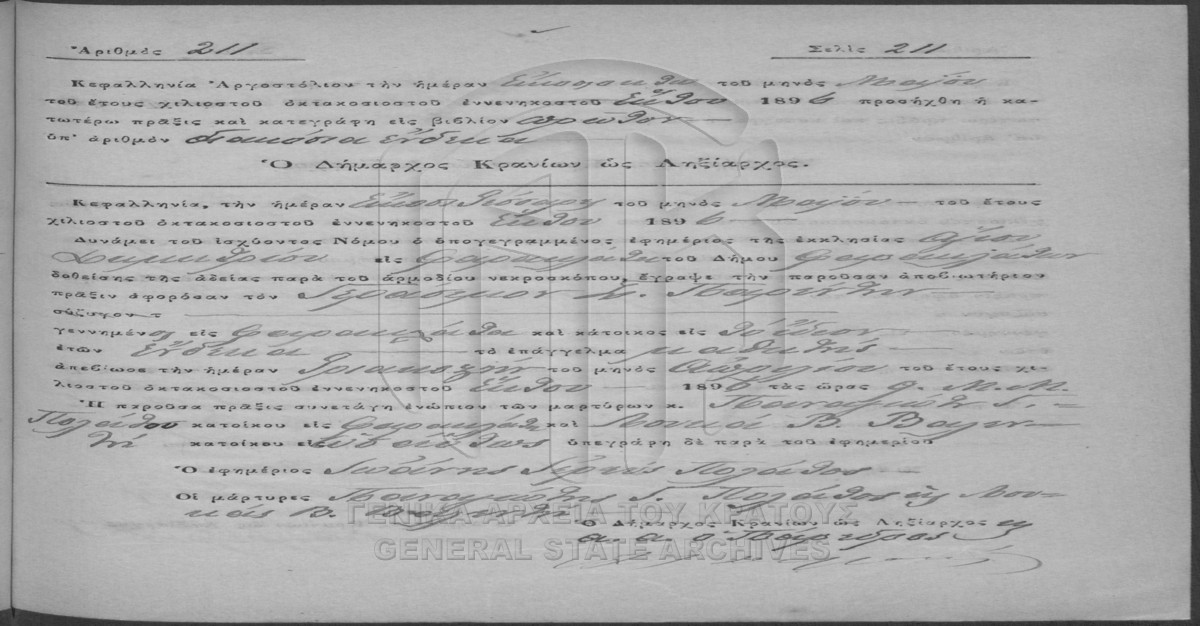 Ἀριθμὸς 211 Σελὶς 211
Κεφαλληνία Ἀργοστόλιον τὴν ἡμέραν Εἰκοστὴν τοῦ μηνὸς Μαΐου
τοῦ ἔτους χιλιοστοῦ ὀκτακοσιοστοῦ ἐννενηκοστοῦ ἕκτου 1896 προσήχθη ἡ κα-
τωτέρω πρᾶξις καὶ κατεγράφη εἰς βιβλίον πρῶτον
ὑπ' ἀριθμὸν διακόσια ἕνδεκα
Ὁ Δήμαρχος Κρανίων ὡς Ληξίαρχος.
Κεφαλληνία, τὴν ἡμέραν τοῦ μηνὸς Μαΐου τοῦ ἔτους
χιλιοστοῦ ὀκτακοσιοστοῦ ἐννενηκοστοῦ ἕκτου 1896
Δυνάμει τοῦ ἰσχύοντος Νόμου ὁ ὑπογεγραμμένος ἐφημέριος τῆς ἐκκλησίας Ἁγίου
Δημητρίου εἰς Φαρακλάτα τοῦ Δήμου
δοθείσης τῆς ἀδείας παρὰ τοῦ ἁρμοδίου νεκροσκόπου, ἔγραψε τὴν παροῦσαν ἀποβιωτήριον
πρᾶξιν ἀφορῶσαν τὸν Γεράσιμον
σύζυγον τ
γεννημένος εἰς Φαρακλάτα καὶ κάτοικος εἰς τὸ ἴδιον
ἐτῶν ἕνδεκα τὸ ἐπάγγελμα μαθητὴς
ἀπεβίωσε τὴν ἡμέραν τριακοστὴν τοῦ μηνὸς Ἀπριλίου τοῦ ἔτους χι-
λιοστοῦ ὀκτακοσιοστοῦ ἐννενηκοστοῦ ἕκτου 1896 τὰς ὥρας 9. Μ.Μ.
Ἡ παροῦσα πρᾶξις συνετάγη ἐνώπιον τῶν μαρτύρων κ. Παναγιώτη Γ.
Πολλάτου κατοίκου εἰς Φαρακλάτα καὶ Β.
κατοίκου εἰς ὑπεγράφη δὲ παρὰ τοῦ ἐφημερίου
Ὁ ἐφημέριος Ἰωάννης Ἱερεὺς Πολλάτος
Οἱ μάρτυρες Παναγιώτης Γ. Πολλάτος Λου-
κᾶς Β.
Ὁ Δήμαρχος Κρανίων ὡς Ληξίαρχος
ΓΕΝΙΚΑ ΑΡΧΕΙΑ ΤΟΥ ΚΡΑΤΟΥΣ
GENERAL STATE ARCHIVES